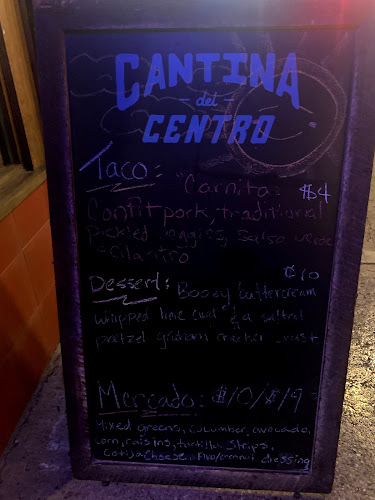 CANTINA
del
CENTRO
Taco:
"Carnita: $4
Confit pork, traditional
pickled veggies, salsa verde
cilantro
$10
Dessert: Boozy buttercream
whipped lime curd a salted
pretzel graham cracker crust
Mercado: $10/$19
Mixed greens, cucumber, avocado,
corn, raisins, tortilla strips,
Cotija Cheese, dressing